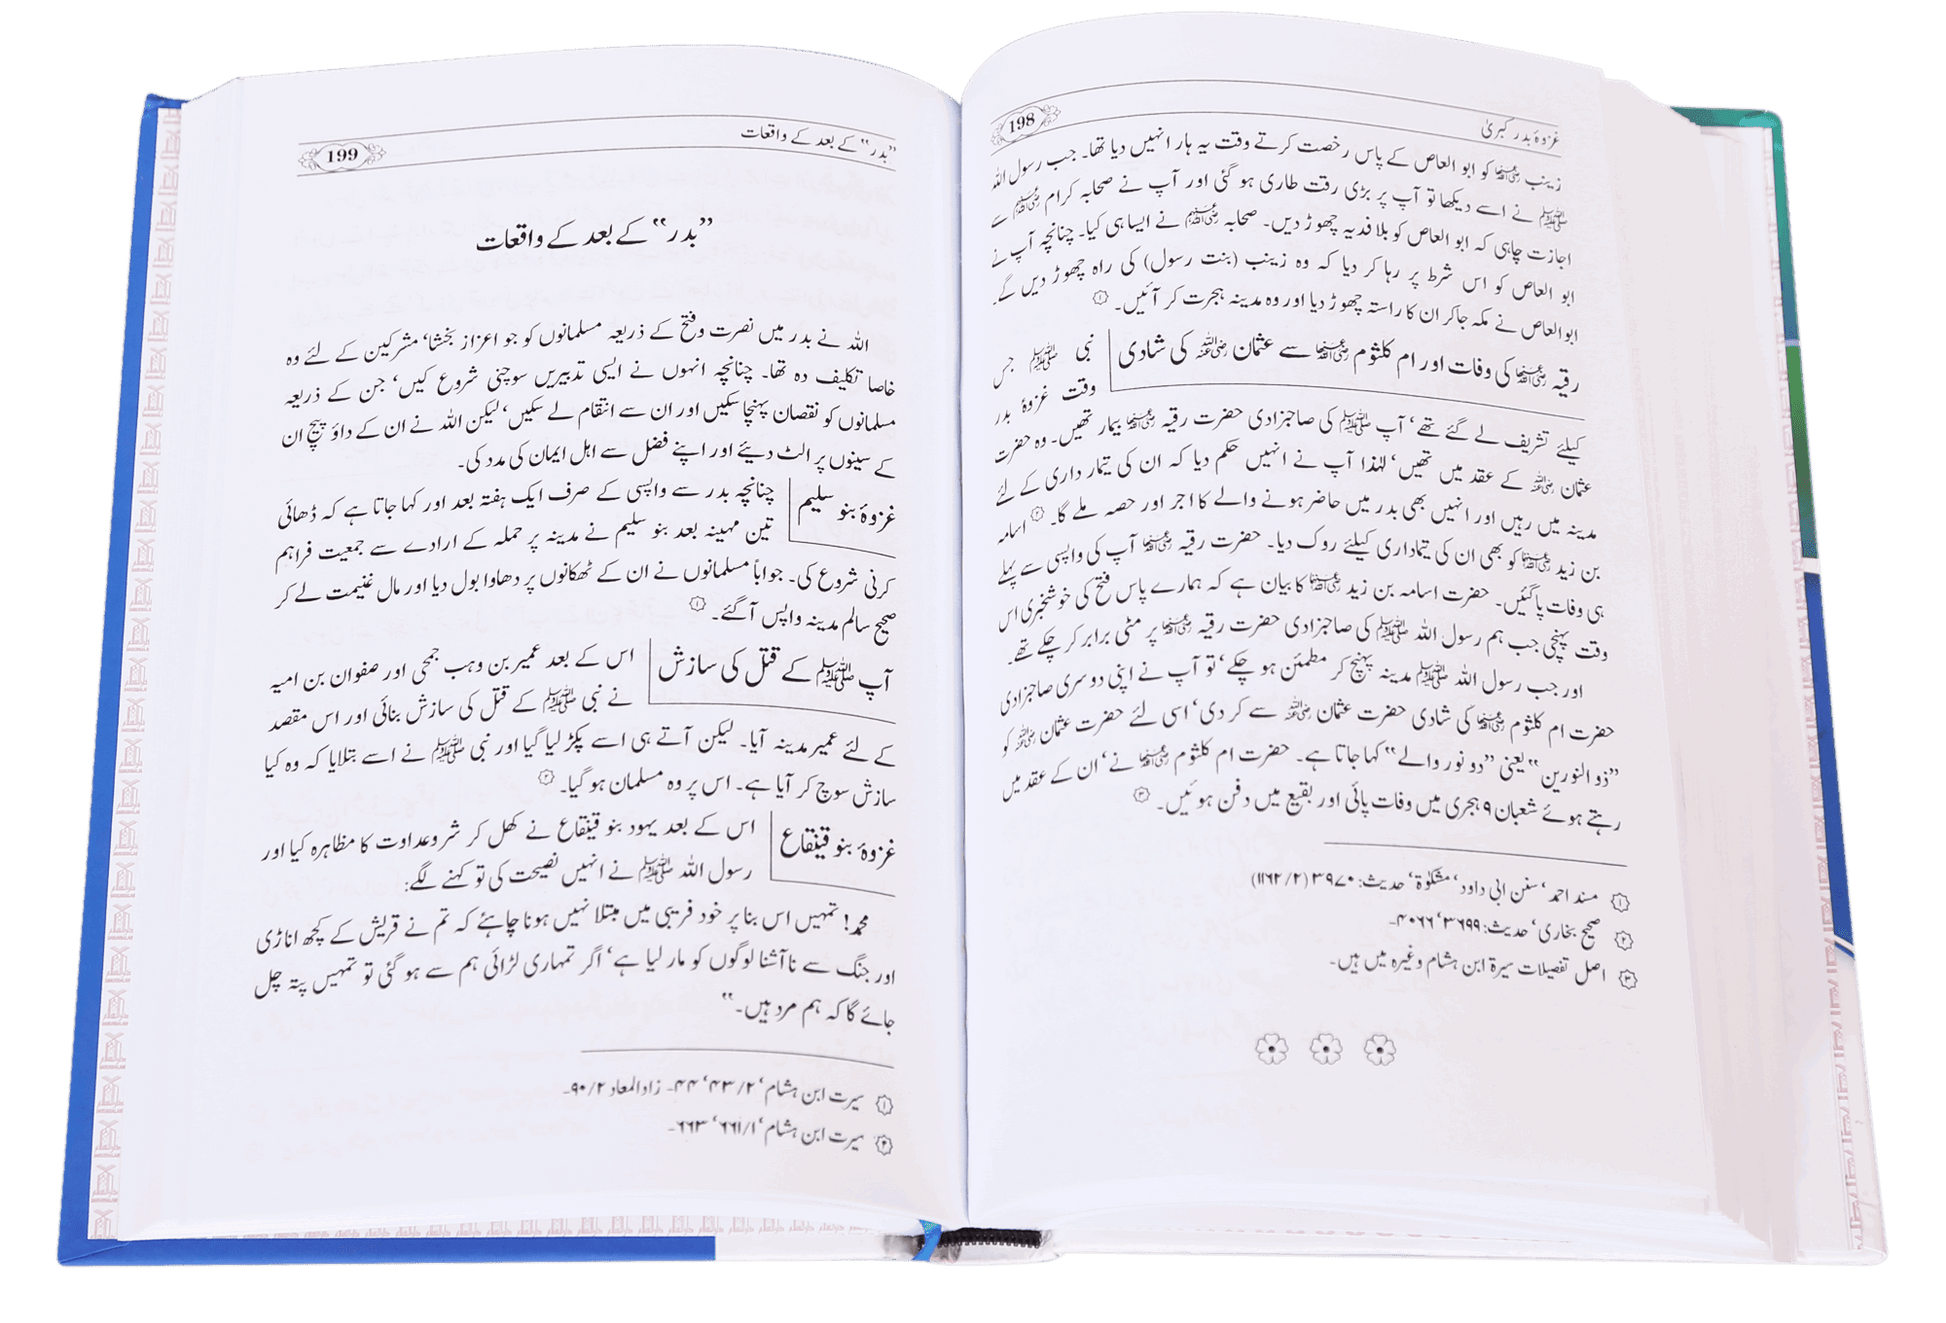 غزوۂ بدر کبریٰ
198
زینب رضی اللہ عنہا کو ابو العاص کے پاس رخصت کرتے وقت یہ ہار انہیں دیا تھا۔ جب رسول اللہ
ﷺ نے اسے دیکھا تو آپ پر بڑی رقت طاری ہو گئی اور آپ نے صحابہ کرام رضی اللہ عنہم سے
اجازت چاہی کہ ابو العاص کو بلا فدیہ چھوڑ دیں۔ صحابہ رضی اللہ عنہم نے ایسا ہی کیا۔ چنانچہ آپ نے
ابو العاص کو اس شرط پر رہا کر دیا کہ وہ زینب (بنت رسول) کی راہ چھوڑ دیں گے۔
ابوالعاص نے مکہ جاکر ان کا راستہ چھوڑ دیا اور وہ مدینہ ہجرت کر آئیں۔ ①
رقیہ رضی اللہ عنہا کی وفات اور ام کلثوم رضی اللہ عنہا سے عثمان رضی اللہ عنہ کی شادی
نبی ﷺ جس
وقت غزوۂ بدر
کیلئے تشریف لے گئے تھے‘ آپ ﷺ کی صاحبزادی حضرت رقیہ رضی اللہ عنہا بیمار تھیں۔ وہ حضرت
عثمان رضی اللہ عنہ کے عقد میں تھیں‘ لہٰذا آپ نے انہیں حکم دیا کہ ان کی تیمار داری کے لئے
مدینہ میں رہیں اور انہیں بھی بدر میں حاضر ہونے والے کا اجر اور حصہ ملے گا۔ ② اسامہ
بن زید رضی اللہ عنہما کو بھی ان کی تیماداری کیلئے روک دیا۔ حضرت رقیہ رضی اللہ عنہا آپ کی واپسی سے پہلے
ہی وفات پاگئیں۔ حضرت اسامہ بن زید رضی اللہ عنہما کا بیان ہے کہ ہمارے پاس فتح کی خوشخبری اس
وقت پہنچی جب ہم رسول اللہ ﷺ کی صاحبزادی حضرت رقیہ رضی اللہ عنہا پر مٹی برابر کر چکے تھے۔
اور جب رسول اللہ ﷺ مدینہ پہنچ کر مطمئن ہو چکے‘ تو آپ نے اپنی دوسری صاحبزادی
حضرت ام کلثوم رضی اللہ عنہا کی شادی حضرت عثمان رضی اللہ عنہ سے کر دی‘ اسی لئے حضرت عثمان رضی اللہ عنہ کو
”ذو النورین“ یعنی ”دو نور والے“ کہا جاتا ہے۔ حضرت ام کلثوم رضی اللہ عنہا نے‘ ان کے عقد میں
رہتے ہوئے شعبان ۹ ہجری میں وفات پائی اور بقیع میں دفن ہوئیں۔ ③
① مسند احمد‘ سنن ابی داود‘ مشکوٰۃ‘ حدیث: ۳۹۷۰ (۲/۱۱۶۲)
② صحیح بخاری‘ حدیث: ۳۶۹۹‘ ۴۰۶۶۔
③ اصل تفصیلات سیرۃ ابن ہشام وغیرہ میں ہیں۔
”بدر“ کے بعد کے واقعات
199
”بدر“ کے بعد کے واقعات
اللہ نے بدر میں نصرت وفتح کے ذریعہ مسلمانوں کو جو اعزاز بخشا‘ مشرکین کے لئے وہ
خاصا تکلیف دہ تھا۔ چنانچہ انہوں نے ایسی تدبیریں سوچنی شروع کیں‘ جن کے ذریعہ
مسلمانوں کو نقصان پہنچا سکیں اور ان سے انتقام لے سکیں‘ لیکن اللہ نے ان کے داؤ پیچ ان
کے سینوں پر الٹ دیئے اور اپنے فضل سے اہل ایمان کی مدد کی۔
غزوۂ بنو سلیم
چنانچہ بدر سے واپسی کے صرف ایک ہفتہ بعد اور کہا جاتا ہے کہ ڈھائی
تین مہینہ بعد بنو سلیم نے مدینہ پر حملہ کے ارادے سے جمعیت فراہم
کرنی شروع کی۔ جواباً مسلمانوں نے ان کے ٹھکانوں پر دھاوا بول دیا اور مال غنیمت لے کر
صحیح سالم مدینہ واپس آگئے۔ ①
آپ ﷺ کے قتل کی سازش
اس کے بعد عمیر بن وہب جمحی اور صفوان بن امیہ
نے نبی ﷺ کے قتل کی سازش بنائی اور اس مقصد
کے لئے عمیر مدینہ آیا۔ لیکن آتے ہی اسے پکڑ لیا گیا اور نبی ﷺ نے اسے بتلایا کہ وہ کیا
سازش سوچ کر آیا ہے۔ اس پر وہ مسلمان ہو گیا۔ ②
غزوۂ بنو قینقاع
اس کے بعد یہود بنو قینقاع نے کھل کر شروعداوت کا مظاہرہ کیا اور
رسول اللہ ﷺ نے انہیں نصیحت کی تو کہنے لگے:
محمد! تمہیں اس بنا پر خود فریبی میں مبتلا نہیں ہونا چاہئے کہ تم نے قریش کے کچھ اناڑی
اور جنگ سے ناآشنا لوگوں کو مار لیا ہے‘ اگر تمہاری لڑائی ہم سے ہو گئی تو تمہیں پتہ چل
جائے گا کہ ہم مرد ہیں۔“
① سیرت ابن ہشام‘ ۲/۴۳‘ ۴۴۔ زادالمعاد ۲/۹۰۔
② سیرت ابن ہشام‘ ۱/۶۶۱‘ ۶۶۳۔